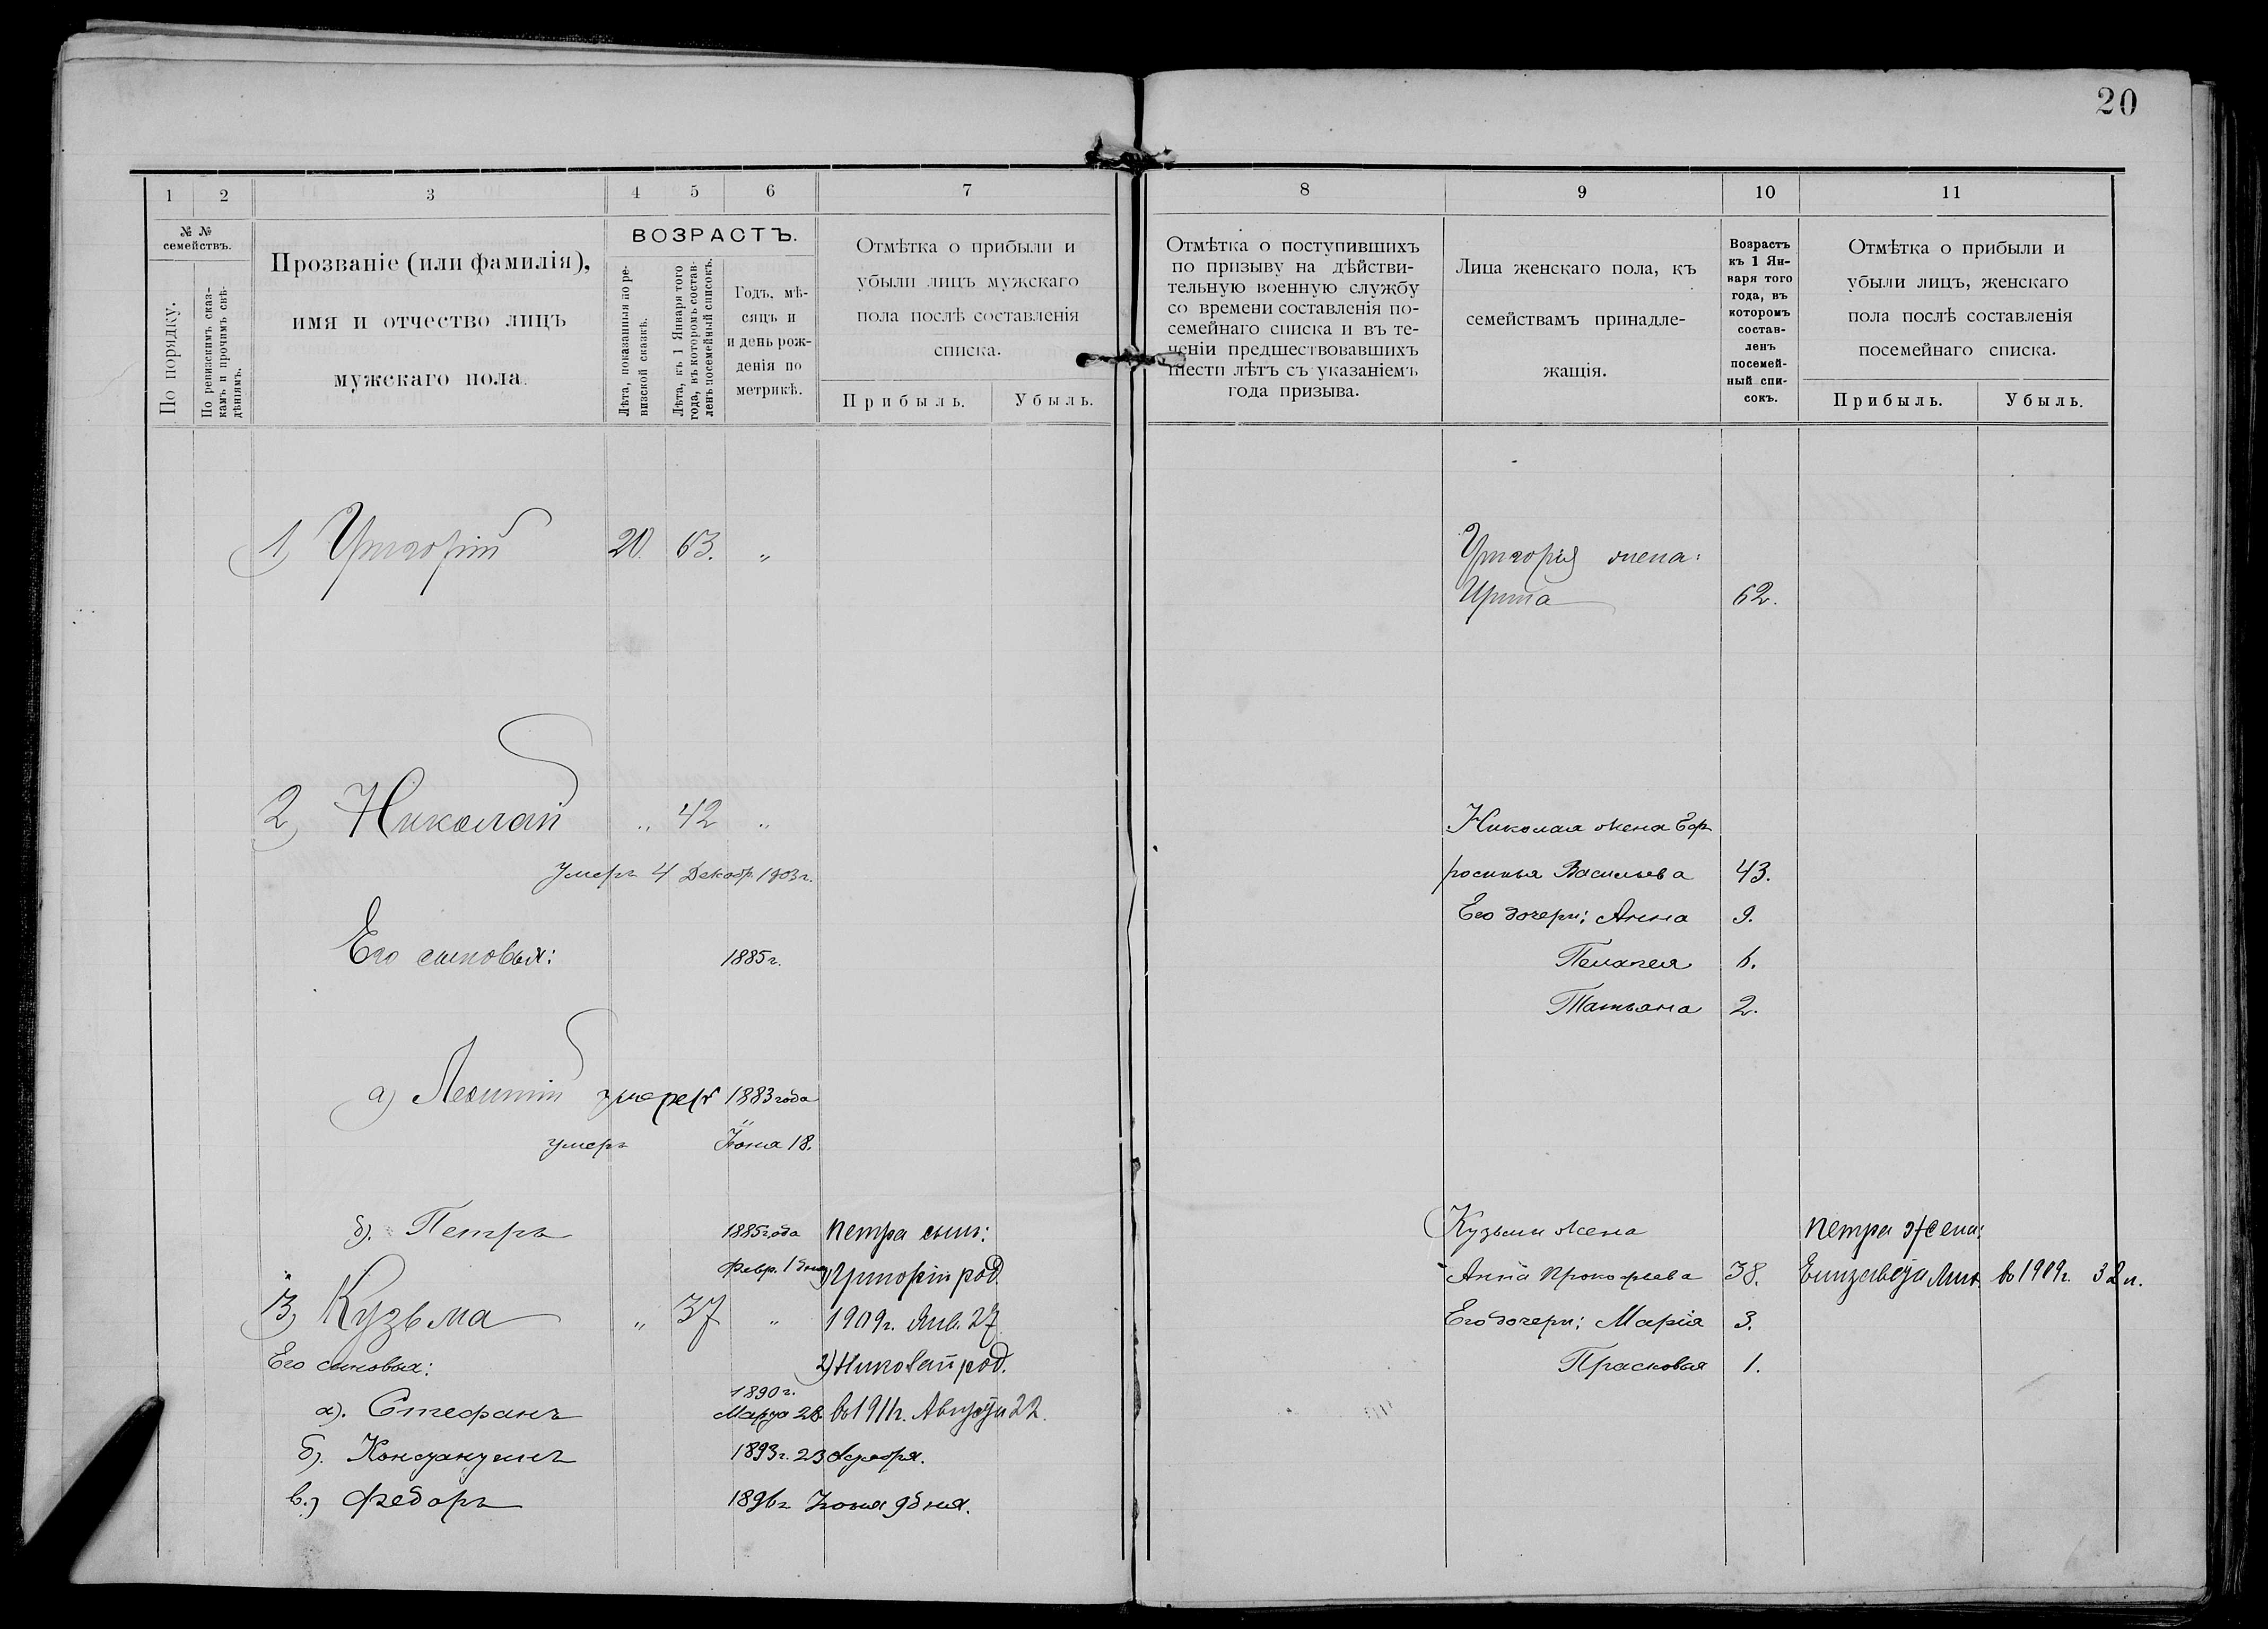 20
1
2
3
4
5
6
7
№ №
семействъ.
По порядку.
По ревизскимъ сказ-
камъ и прочимъ свѣ-
дѣніямъ.
Прозваніе (или фамилія),
имя и отчество лицъ
мужскаго пола.
ВОЗРАСТЪ.
Лѣта, показанныя по ре-
визской сказкѣ.
Лѣта, къ 1 Января того
года, въ которомъ состав-
ленъ посемейный списокъ.
Годъ, мѣ-
сяцъ и
и день рож-
денія по
метрикѣ.
Отмѣтка о прибыли и
убыли лицъ мужскаго
пола послѣ составленія
списка.
Прибыль.
Убыль.
1) Григорій 20. 63. „
2) Николай „ 42 „
умеръ 4 Декабр. 1903 г.
Его сыновья: 1885 г.
а) Леонтій умеръ 1883 года
умеръ Іюня 18.
б). Петръ 1885 года Петра сын:
Февр. 1 дня 1) Григорій род.
3) Кузьма „ 37 „ 1909 г. Янв. 27
Его сыновья: 2) Николай род.
1890 г.
а). Стефанъ Марта 28 въ 1911 г. Августа 22.
б). Константинъ 1893 г. 23
в.) Федоръ 1896 г. Іюня 9 дня.
8
9
10
11
Отмѣтка о поступившихъ
по призыву на дѣйстви-
тельную военную службу
со времени составленія по-
семейнаго списка и въ те-
ченіи предшествовавшихъ
шести лѣтъ съ указаніемъ
года призыва.
Лица женскаго пола, къ
семействамъ принадле-
жащія.
Возрастъ
къ 1 Ян-
варя того
года, въ
которомъ
состав-
ленъ
посемей-
ный спи-
сокъ.
Отмѣтка о прибыли и
убыли лицъ, женскаго
пола послѣ составленія
посемейнаго списка.
Прибыль.
Убыль.
Григорія жена:
Ирина 62.
Николая жена Еф
росинья Васильева 43.
Его дочери: Анна 9.
Пелагея 6.
Татьяна 2.
Кузьмы жена Петра жена:
Анна Прокофьева 38. Елизавета въ 1909 г.
Его дочери: Марія 3.
Прасковья 1.